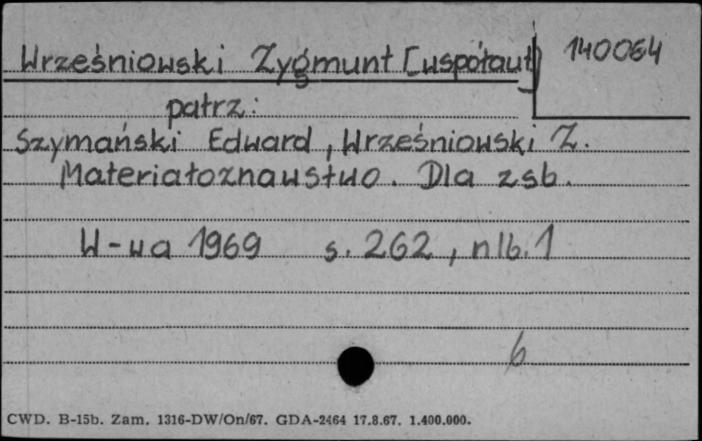 Wrześniowski Zygmunt [współaut] 140064
patrz:
Szymański Edward, Wrześniowski Z.
Materiałoznawstwo. Dla zsb.
W-wa 1969 s. 262, nlb. 1
6
CWD. B-15b. Zam. 1316-DW/On/67. GDA-2464 17.8.67. 1.400.000.